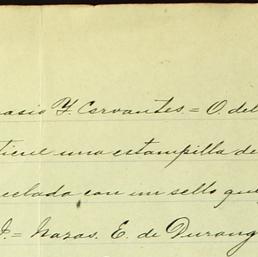 asio Y. Cervantes.= O. del
tiene una estampilla de
celada con un sello que
J.= Nazas. E. de Durang